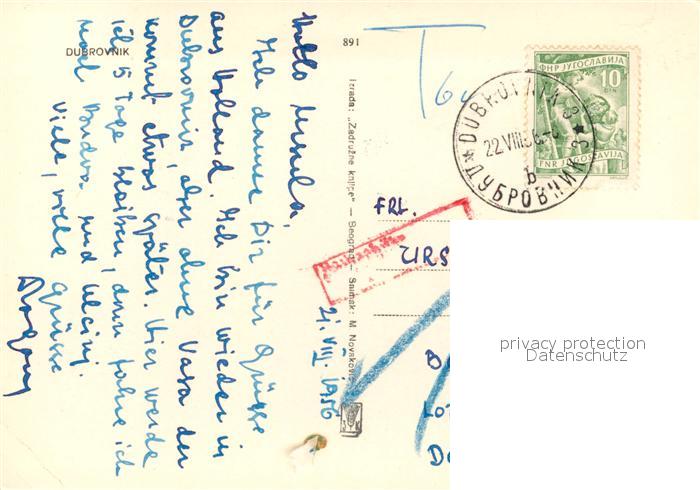 DUBROVNIK
891
Hallo Ursula,
Ich danke Dir für Grüsse
aus Holland. Ich bin wieder in
Dubrovnik, aber ohne Vasa der
kommt etwas später. Hier werde
ich 5 Tage bleiben, dann fahre ich
nach Budva und Ulcinj.
Viele, viele Grüsse
21. VIII. 1956
Izrada: „Zadružne knjige" — Beograd — Snimak: M. Novaković
T
ФНР ЈУГОСЛАВИЈА
10
DIN
FNR JUGOSLAVIJA
DUBROVNIK 3
22.VIII.56
b
ДУБРОВНИК 3
FRL.
URS
privacy protection
Datenschutz